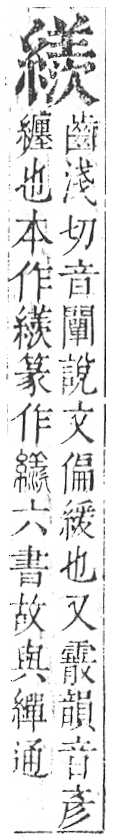 緓
齒淺切音闡說文偏緩也又霰韻音彥
纏也本作緓篆作六書故與繟通